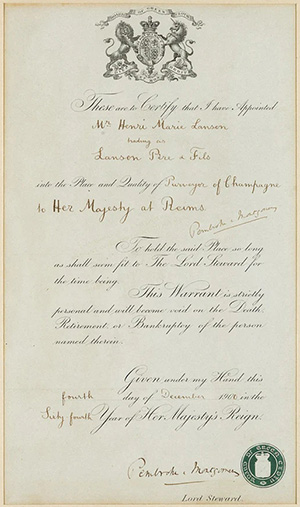 These are to Certify that I have Appointed
Mr Henri Marie Lanson
trading as
Lanson Père & Fils
into the Place and Quality of Purveyor of Champagne
to Her Majesty at Reims.
Pembroke & Montgomery
To hold the said Place so long
as shall seem fit to The Lord Steward for
the time being.
This Warrant is strictly
personal and will become void on the Death,
Retirement or Bankruptcy of the person
named therein.
Given under my Hand this
fourth day of December 1900 in the
Sixty fourth Year of Her Majesty's Reign.
Pembroke & Montgomery
Lord Steward.